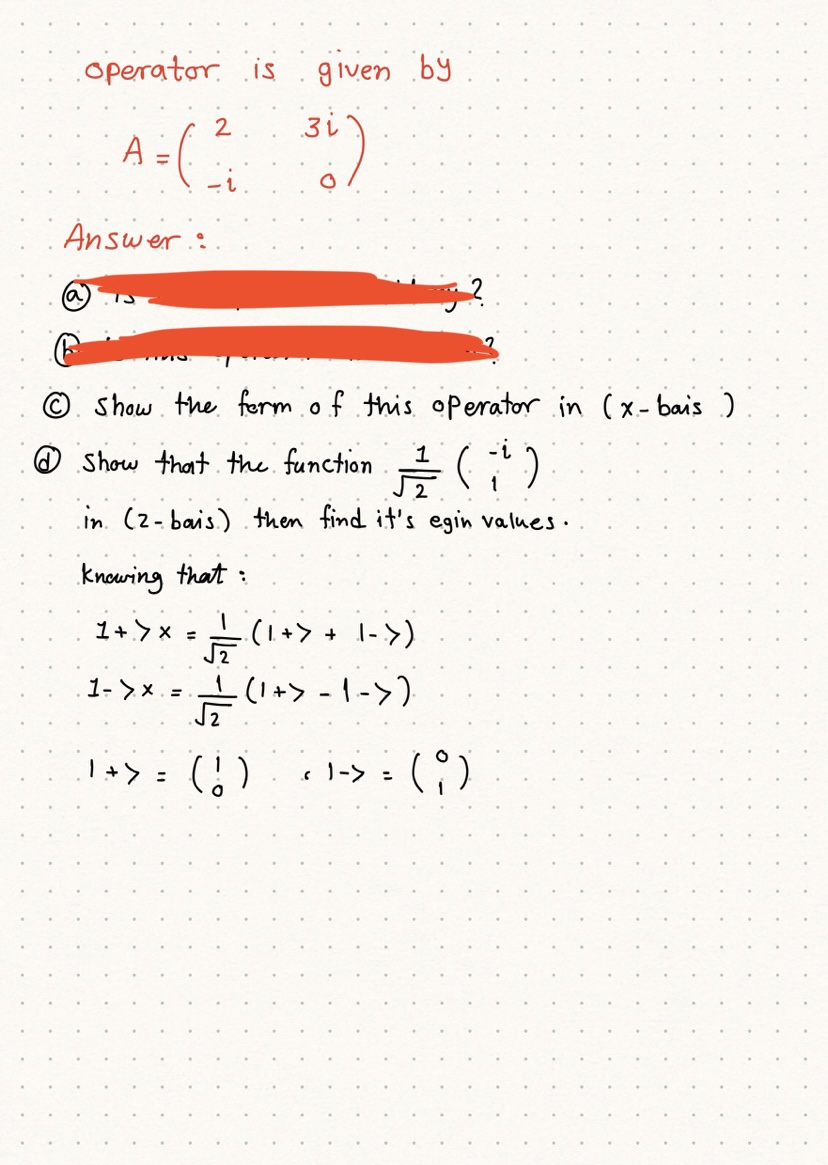 operator is given by
A = ( 2 3i
-i 0 )
Answer :
(a) is ?
(b) ?
(c) show the form of this operator in (x-bais)
(d) show that the function 1/√2 ( -i 1 )
in (z-bais) then find it's egin values.
knowing that :
1+>x = 1/√2 (1+> + 1->)
1->x = 1/√2 (1+> - 1->)
1+> = ( 1 0 ) , 1-> = ( 0 1 )